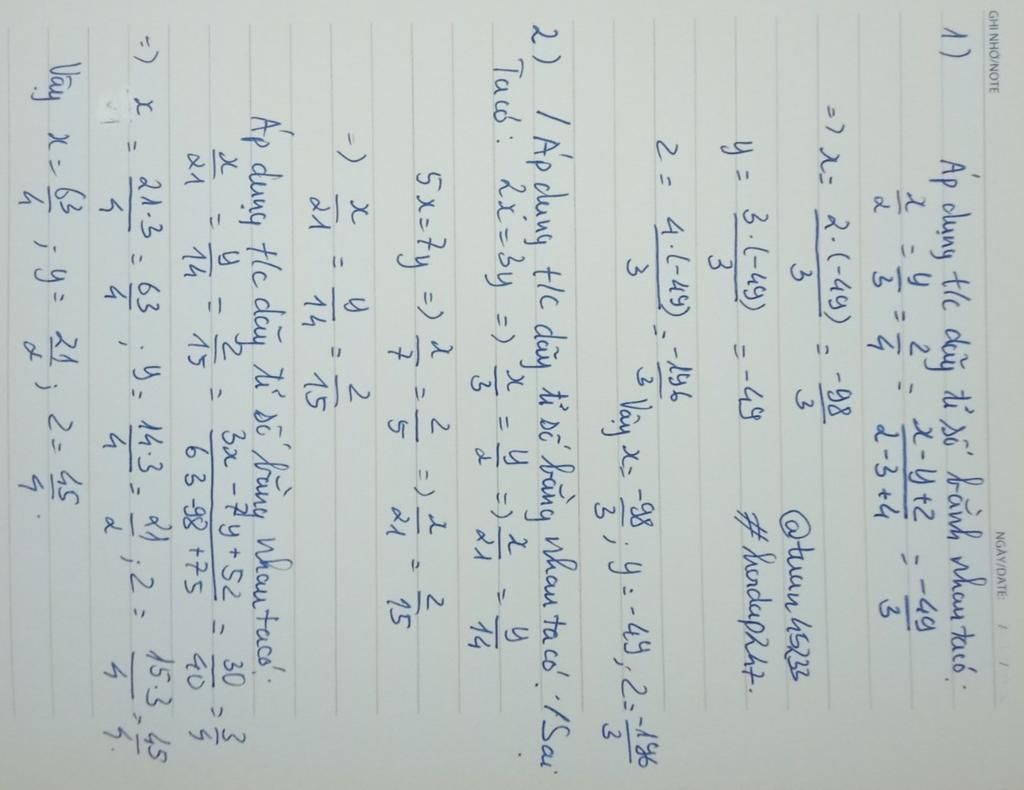 GHI NHỚ/NOTE NGÀY/DATE: / /
1) Áp dụng t/c dãy tỉ số bằnh nhau ta có:
x/2 = y/3 = z/4 = x-y+z/2-3+4 = -49/3
=) x = 2.(-49)/3 = -98/3
@tuan45233
y = 3.(-49)/3 = -49
#hondap247.
z = 4.(-49)/3 = -196/3
Vậy x = -98/3, y = -49, z = -196/3
2) / Áp dụng t/c dãy tỉ số bằng nhau ta có: / Sai
Ta có: 2x = 3y =) x/3 = y/2 =) x/21 = y/14
5x = 7y =) x/7 = z/5 =) x/21 = z/15
=) x/21 = y/14 = z/15
Áp dụng t/c dãy tỉ số bằng nhau ta có:
x/21 = y/14 = z/15 = 3x-7y+5z/63-98+75 = 30/40 = 3/4
=) x = 21.3/4 = 63/4, y = 14.3/4 = 21/2; z = 15.3/4 = 45/4.
Vậy x = 63/4; y = 21/2; z = 45/4.